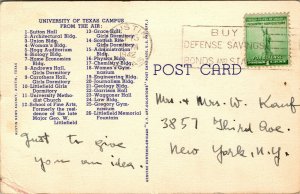 UNIVERSITY OF TEXAS CAMPUS
FROM THE AIR:
1-Sutton Hall
2-Architectural Bldg.
3-Union Bldg.
4-Women's Bldg.
5-Auditorium
6-Biology Bldg.
7-Home Economics Bldg.
8-Andrews Hall, Girls Dormitory
9-Carothers Hall, Girls Dormitory
10-Littlefield Girls Dormitory
11-University Methodist Church
12-School of Fine Arts, Formerly the residence of the late Major Geo. W. Littlefield
13-Grace Hall, Girls Dormitory
14-Scottish Rite Girls Dormitory
15-Architectural Bldg.
16-Physics Bldg.
17-Chemistry Bldg.
18-Women's Gymnasium
19-Engineering Bldg.
20-Journalism Bldg.
21-Geology Bldg.
22-Garrison Hall
23-Waggener Hall
24-Men's Gymnasium
25-Gregory Gym
26-Littlefield Memorial Fountain
BUY
DEFENSE SAVINGS
BONDS AND STAMPS
POST CARD
Just to give
you an idea.
Mrs & Mr. W. Kauf
3857 Third Ave.
New York, N.Y.